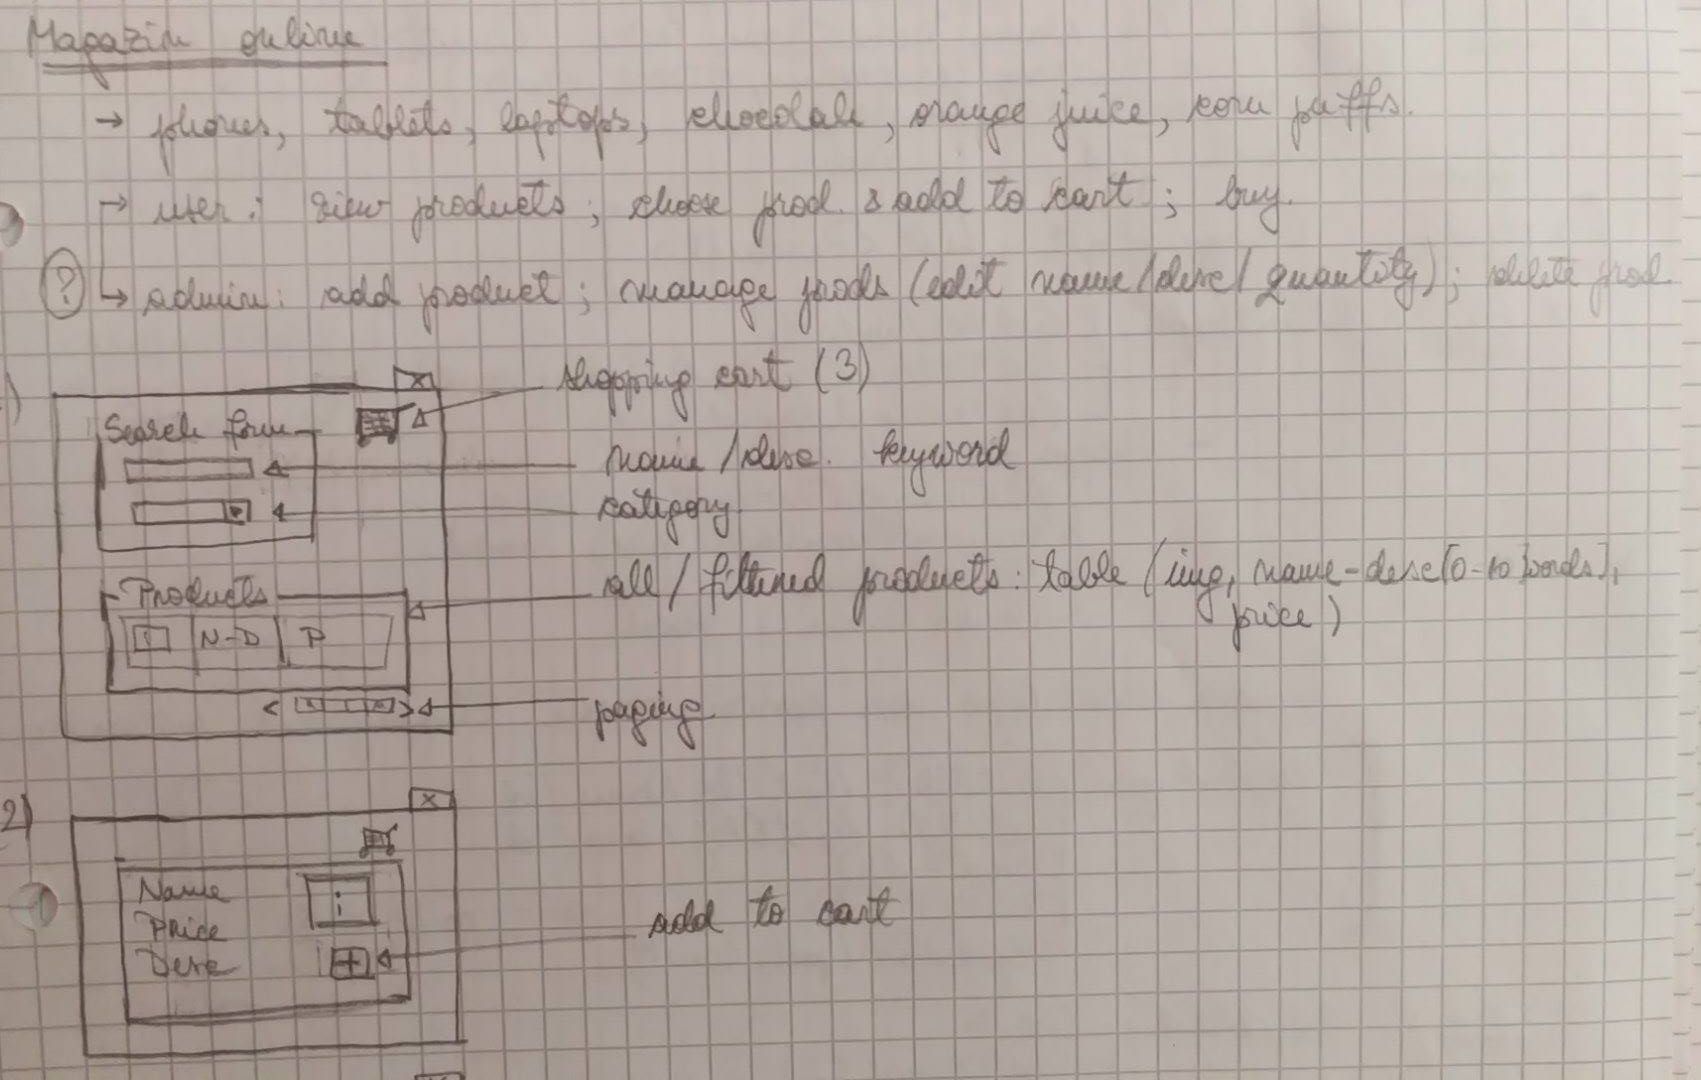 Magazin online
→ phones, tablets, laptops, chocolate, orange juice, corn puffs.
→ user: view products; choose prod. & add to cart; buy.
? ↳ admin: add product; manage prods (edit name/desc/quantity); delete prod.
shopping cart (3)
x
Search form
name/desc. keyword
category
all/filtered products: table (img, name-desc[0-10 words],
price)
Products
i N-D P
< >
paging
2)
x
Name i
Price
Desc +
add to cart